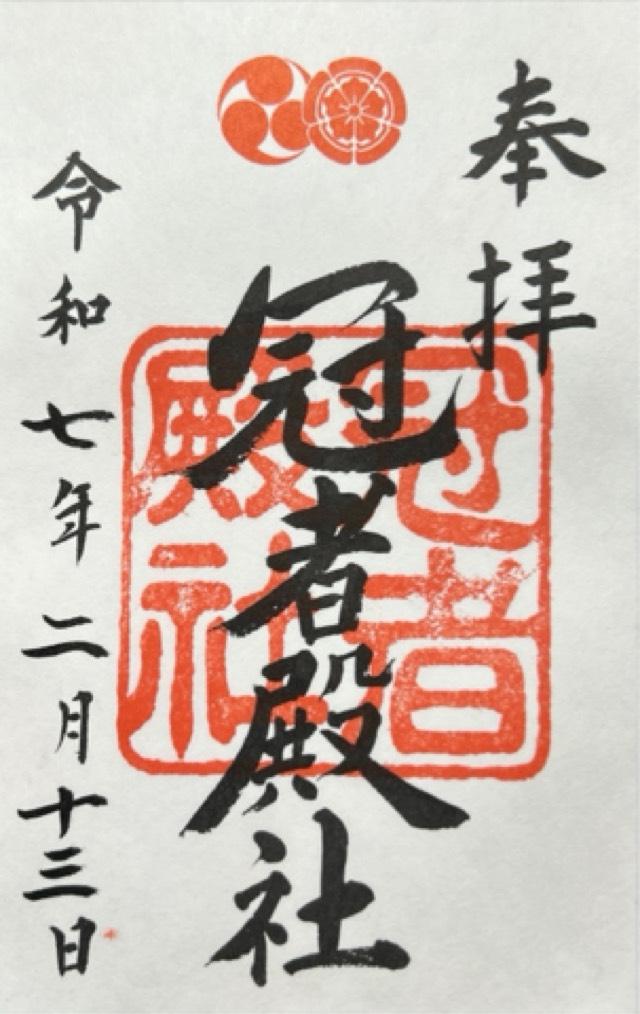 奉拝
冠者殿社
冠者
殿社
令和七年二月十三日